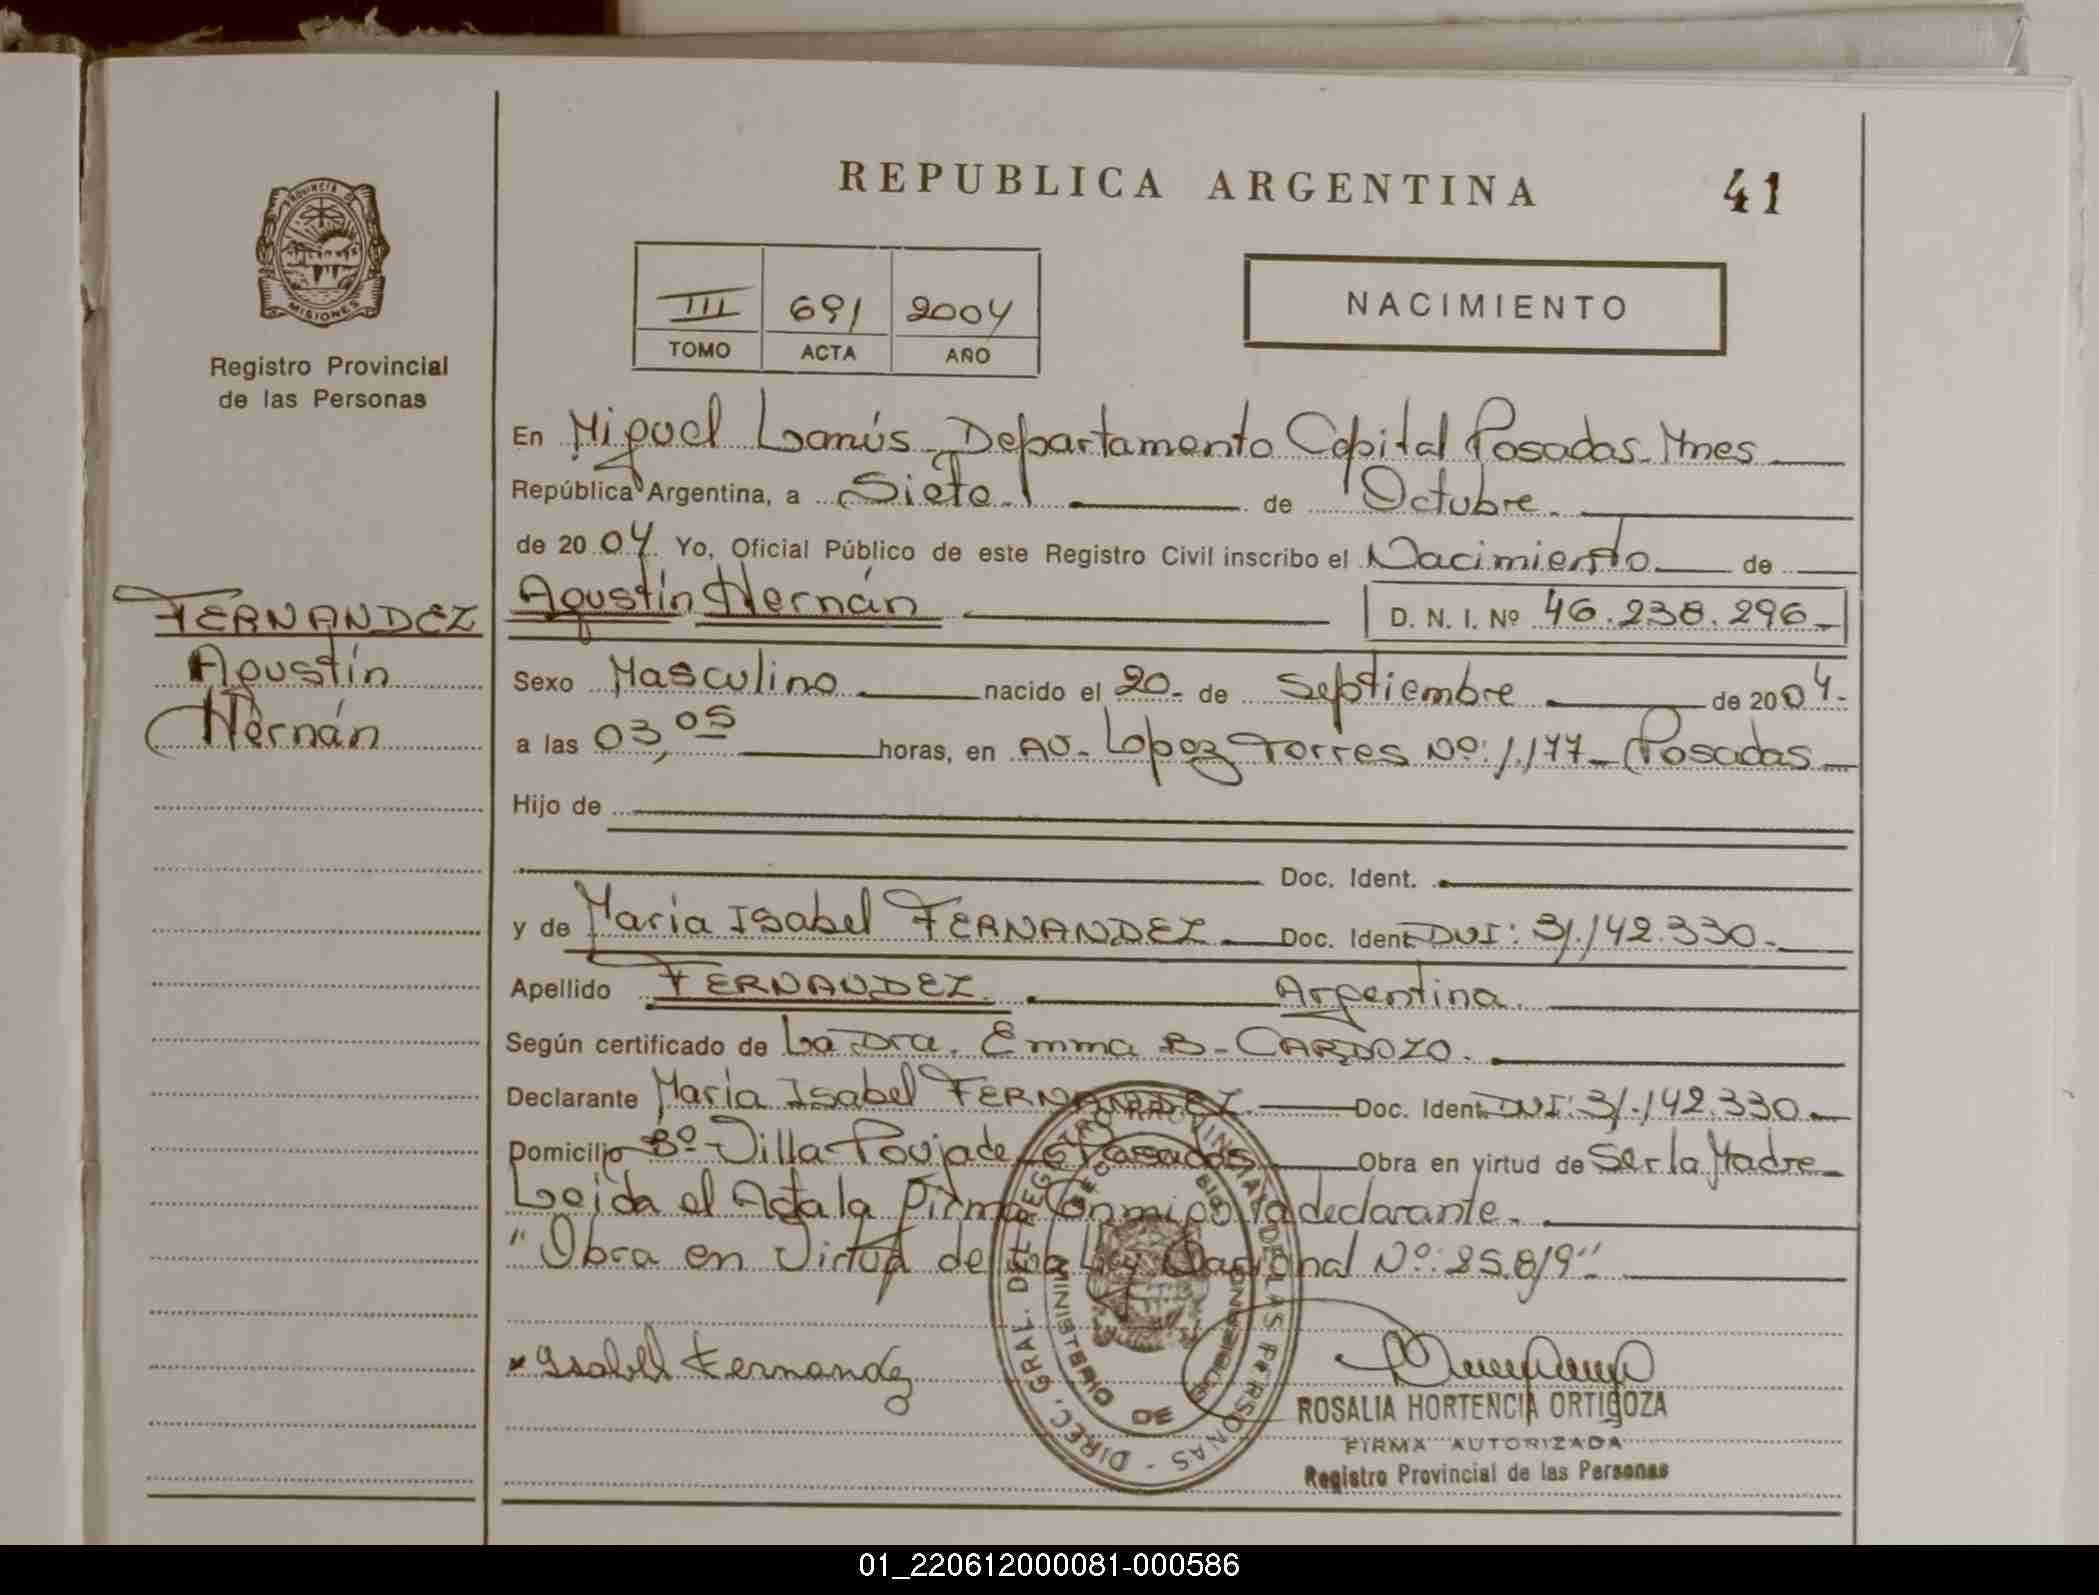 REPUBLICA ARGENTINA 41
PROVINCIA DE
MISIONES
Registro Provincial
de las Personas
III 691 2004
TOMO ACTA AÑO
NACIMIENTO
En Miguel Lanús - Departamento Capital Posadas - Mnes
República Argentina, a Siete. de Octubre.
de 2004. Yo, Oficial Público de este Registro Civil inscribo el Nacimiento de
FERNANDEZ
Agustín
Hernán
Agustín Hernán D. N. I. Nº 46.238.296-
Sexo Masculino nacido el 20- de Septiembre de 2004.
a las 03,05 horas, en AV. Lopez Torres Nº: 1.177- Posadas
Hijo de
Doc. Ident.
y de María Isabel FERNANDEZ Doc. Ident. DNI: 31.142.330.-
Apellido FERNANDEZ. Argentina.
Según certificado de La Dra. Emma B- CARDOZO.
Declarante María Isabel FERNANDEZ Doc. Ident. DNI: 31.142.330.-
Domicilio Bº Villa Poujade - Posadas Obra en virtud de Ser la Madre-
Leída el Acta la firma Conmigo la declarante.
"Obra en Virtud de la Ley Nacional Nº: 25.819"
Isabel Fernandez
DIREC. GRAL. DEL REGISTRO PROVINCIAL DE LAS PERSONAS -
MINISTERIO DE GOBIERNO
ROSALIA HORTENCIA ORTIGOZA
FIRMA AUTORIZADA
Registro Provincial de las Personas
01_220612000081-000586